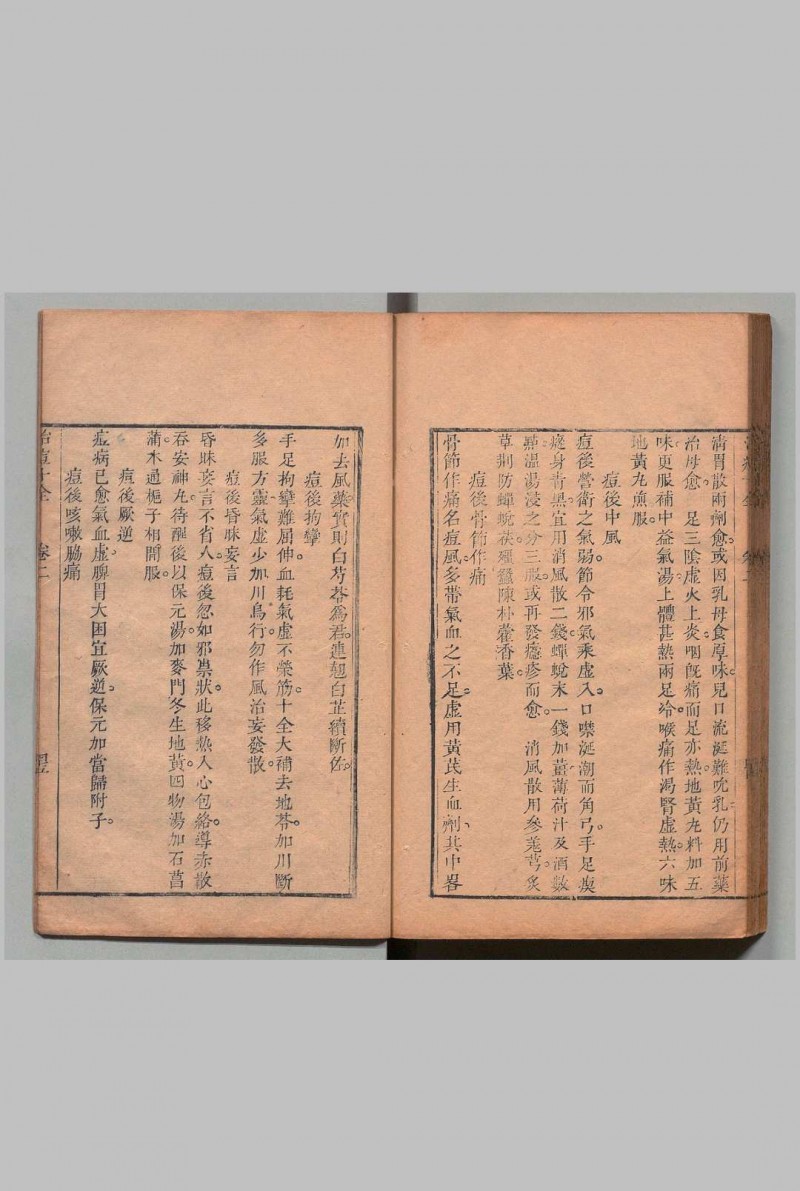 清胃散兩劑愈或因乳母食厚味兒口流涎難吮乳仍用前藥
治母愈　足三陰虛火上炎咽旣痛而足亦熱地黃丸料加五
味更服補中益氣湯上體甚熱兩足冷喉痛作渴腎虛熱六味
地黃丸煎服
痘後中風
痘後營衛之氣弱節令邪氣乘虛入口噤涎潮而角弓手足瘈
瘲身青黑宜用消風散二錢蟬蛻末一錢加薑薄荷汁及酒數
點溫湯浸之分三服或再發癮疹而愈　消風散用參羌芎炙
草荆防蟬蛻茯殭蠶陳朴藿香葉
痘後骨節作痛
骨節作痛名痘風多帶氣血之不足虛用黃芪生血劑其中畧
加去風藥實則白芍苓爲君連翹白芷續斷佐
痘後拘攣
手足拘攣難屈伸血耗氣虛不榮筋十全大補去地苓加川斷
多服方靈氣虛少加川烏行勿作風治妄發散
痘後昏昧妄言
昏昧妄言不省人痘後忽如邪祟狀此移熱入心包絡導赤散
吞安神丸待醒後以保元湯加麥門冬生地黃四物湯加石菖
蒲木通梔子相間服
痘後厥逆
痘病已愈氣血虛脾胃大困宜厥逆保元加當歸附子
痘後咳嗽脇痛
治痘十全　卷二